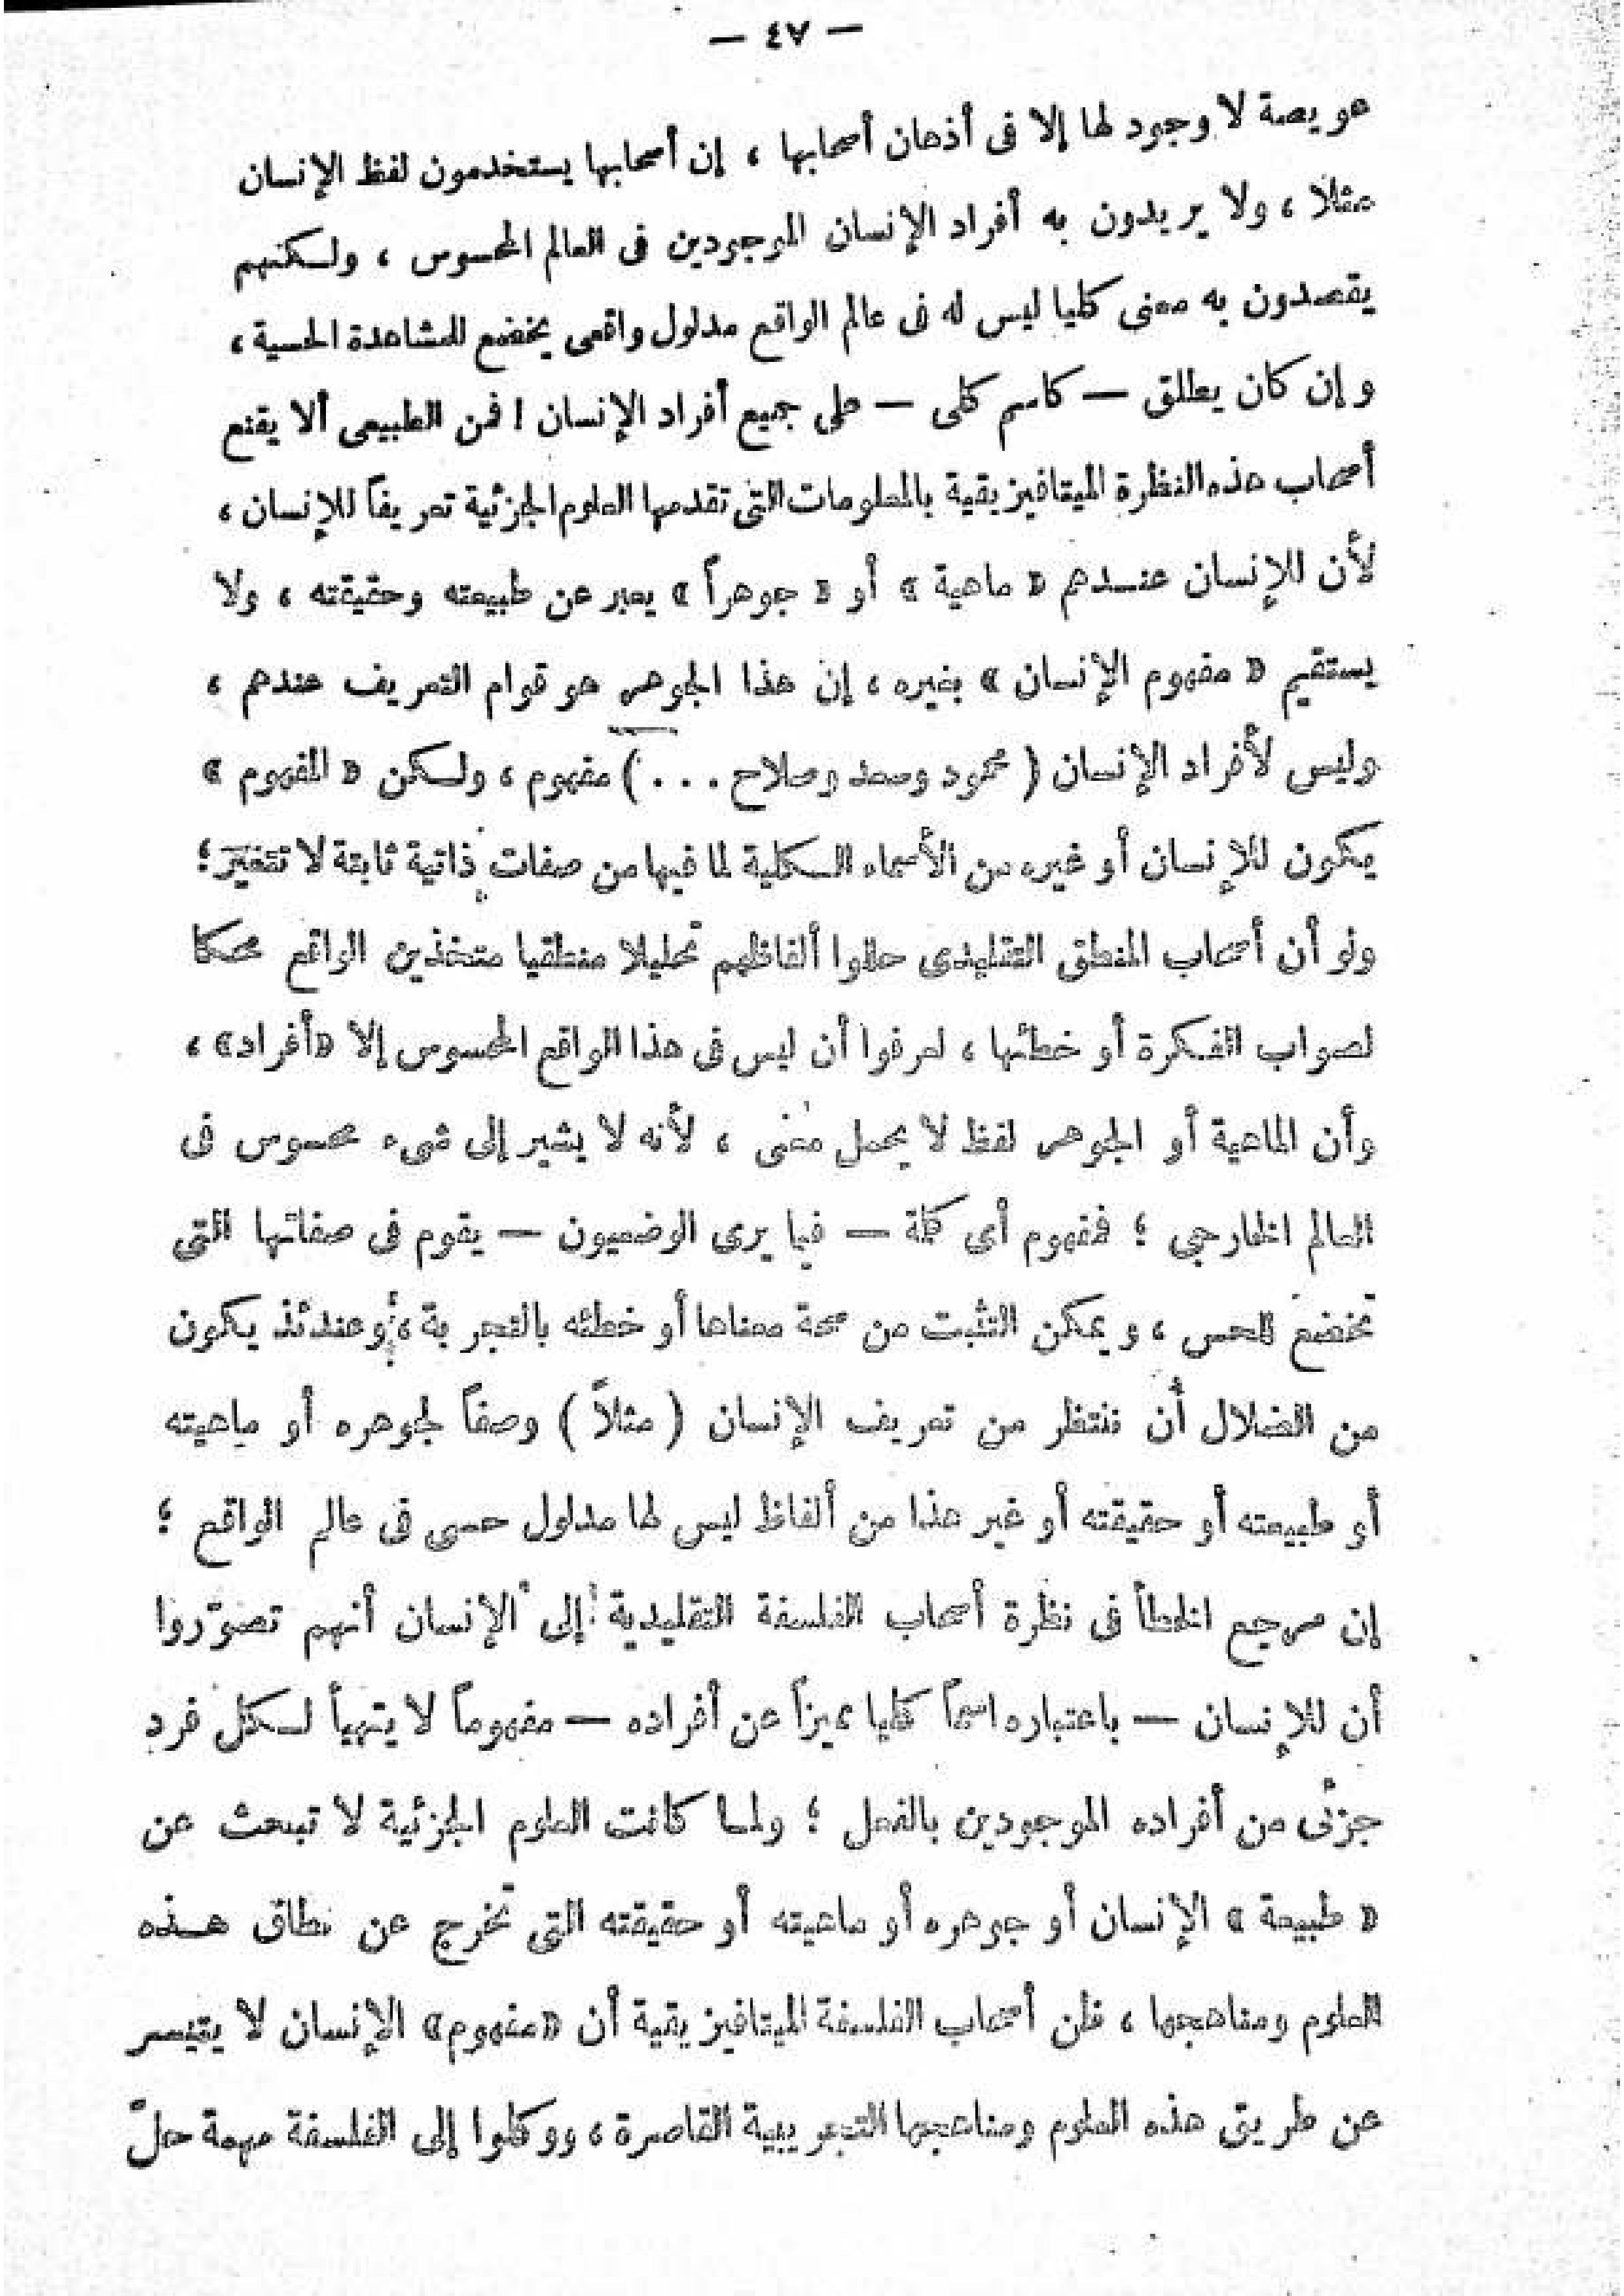 — ٤٧ —
عويصة لا وجود لها إلا فى أذهان أصحابها ، إن أصحابها يستخدمون لفظ الإنسان
مثلا ، ولا يريدون به أفراد الإنسان الموجودين فى العالم المحسوس ، ولكنهم
يقصدون به معنى كليا ليس له فى عالم الواقع مدلول واقعى يخضع للمشاهدة الحسية ،
وإن كان يطلق — كاسم كلى — على جميع أفراد الإنسان ! فمن الطبيعى ألا يقنع
أصحاب هذه النظرة الميتافيزيقية بالمعلومات التى تقدمها العلوم الجزئية تعريفاً للإنسان ،
لأن للإنسان عندهم « ماهية » أو « جوهراً » يعبر عن طبيعته وحقيقته ، ولا
يستقيم « مفهوم الإنسان » بغيره ، إن هذا الجوهر هو قوام التعريف عندهم ،
وليس لأفراد الإنسان ( محمود وسعد وصلاح . . . ) مفهوم ، ولكن « المفهوم »
يكون للإنسان أو غيره من الأسماء الكلية لما فيها من صفات ذاتية ثابتة لا تتغيّر ؛
ولو أن أصحاب المنطق التقليدى حللوا ألفاظهم تحليلا منطقيا متخذين الواقع محكا
لصواب الفكرة أو خطئها ، لعرفوا أن ليس فى هذا الواقع المحسوس إلا «أفراد» ،
وأن الماهية أو الجوهر لفظ لا يحمل معنى ، لأنه لا يشير إلى شىء محسوس فى
العالم الخارجى ؛ فمفهوم أى كلمة — فيما يرى الوضعيون — يقوم فى صفاتها التى
تخضع للحس ، ويمكن التثبت من صحة معناها أو خطئه بالتجربة ، وعندئذ يكون
من الضلال أن ننتظر من تعريف الإنسان ( مثلاً ) وصفاً لجوهره أو ماهيته
أو طبيعته أو حقيقته أو غير هذا من ألفاظ ليس لها مدلول حسى فى عالم الواقع ؛
إن مرجع الخطأ فى نظرة أصحاب الفلسفة التقليدية إلى الإنسان أنهم تصوّروا
أن للإنسان — باعتباره اسماً كليا مميزاً عن أفراده — مفهوماً لا يتهيأ لكل فرد
جزئى من أفراده الموجودين بالفعل ؛ ولما كانت العلوم الجزئية لا تبحث عن
« طبيعة » الإنسان أو جوهره أو ماهيته أو حقيقته التى تخرج عن نطاق هذه
العلوم ومناهجها ، فلن أصحاب الفلسفة الميتافيزيقية أن «مفهوم» الإنسان لا يتيسر
عن طريق هذه العلوم ومناهجها التجريبية القاصرة ، ووكلوا إلى الفلسفة مهمة حلّ